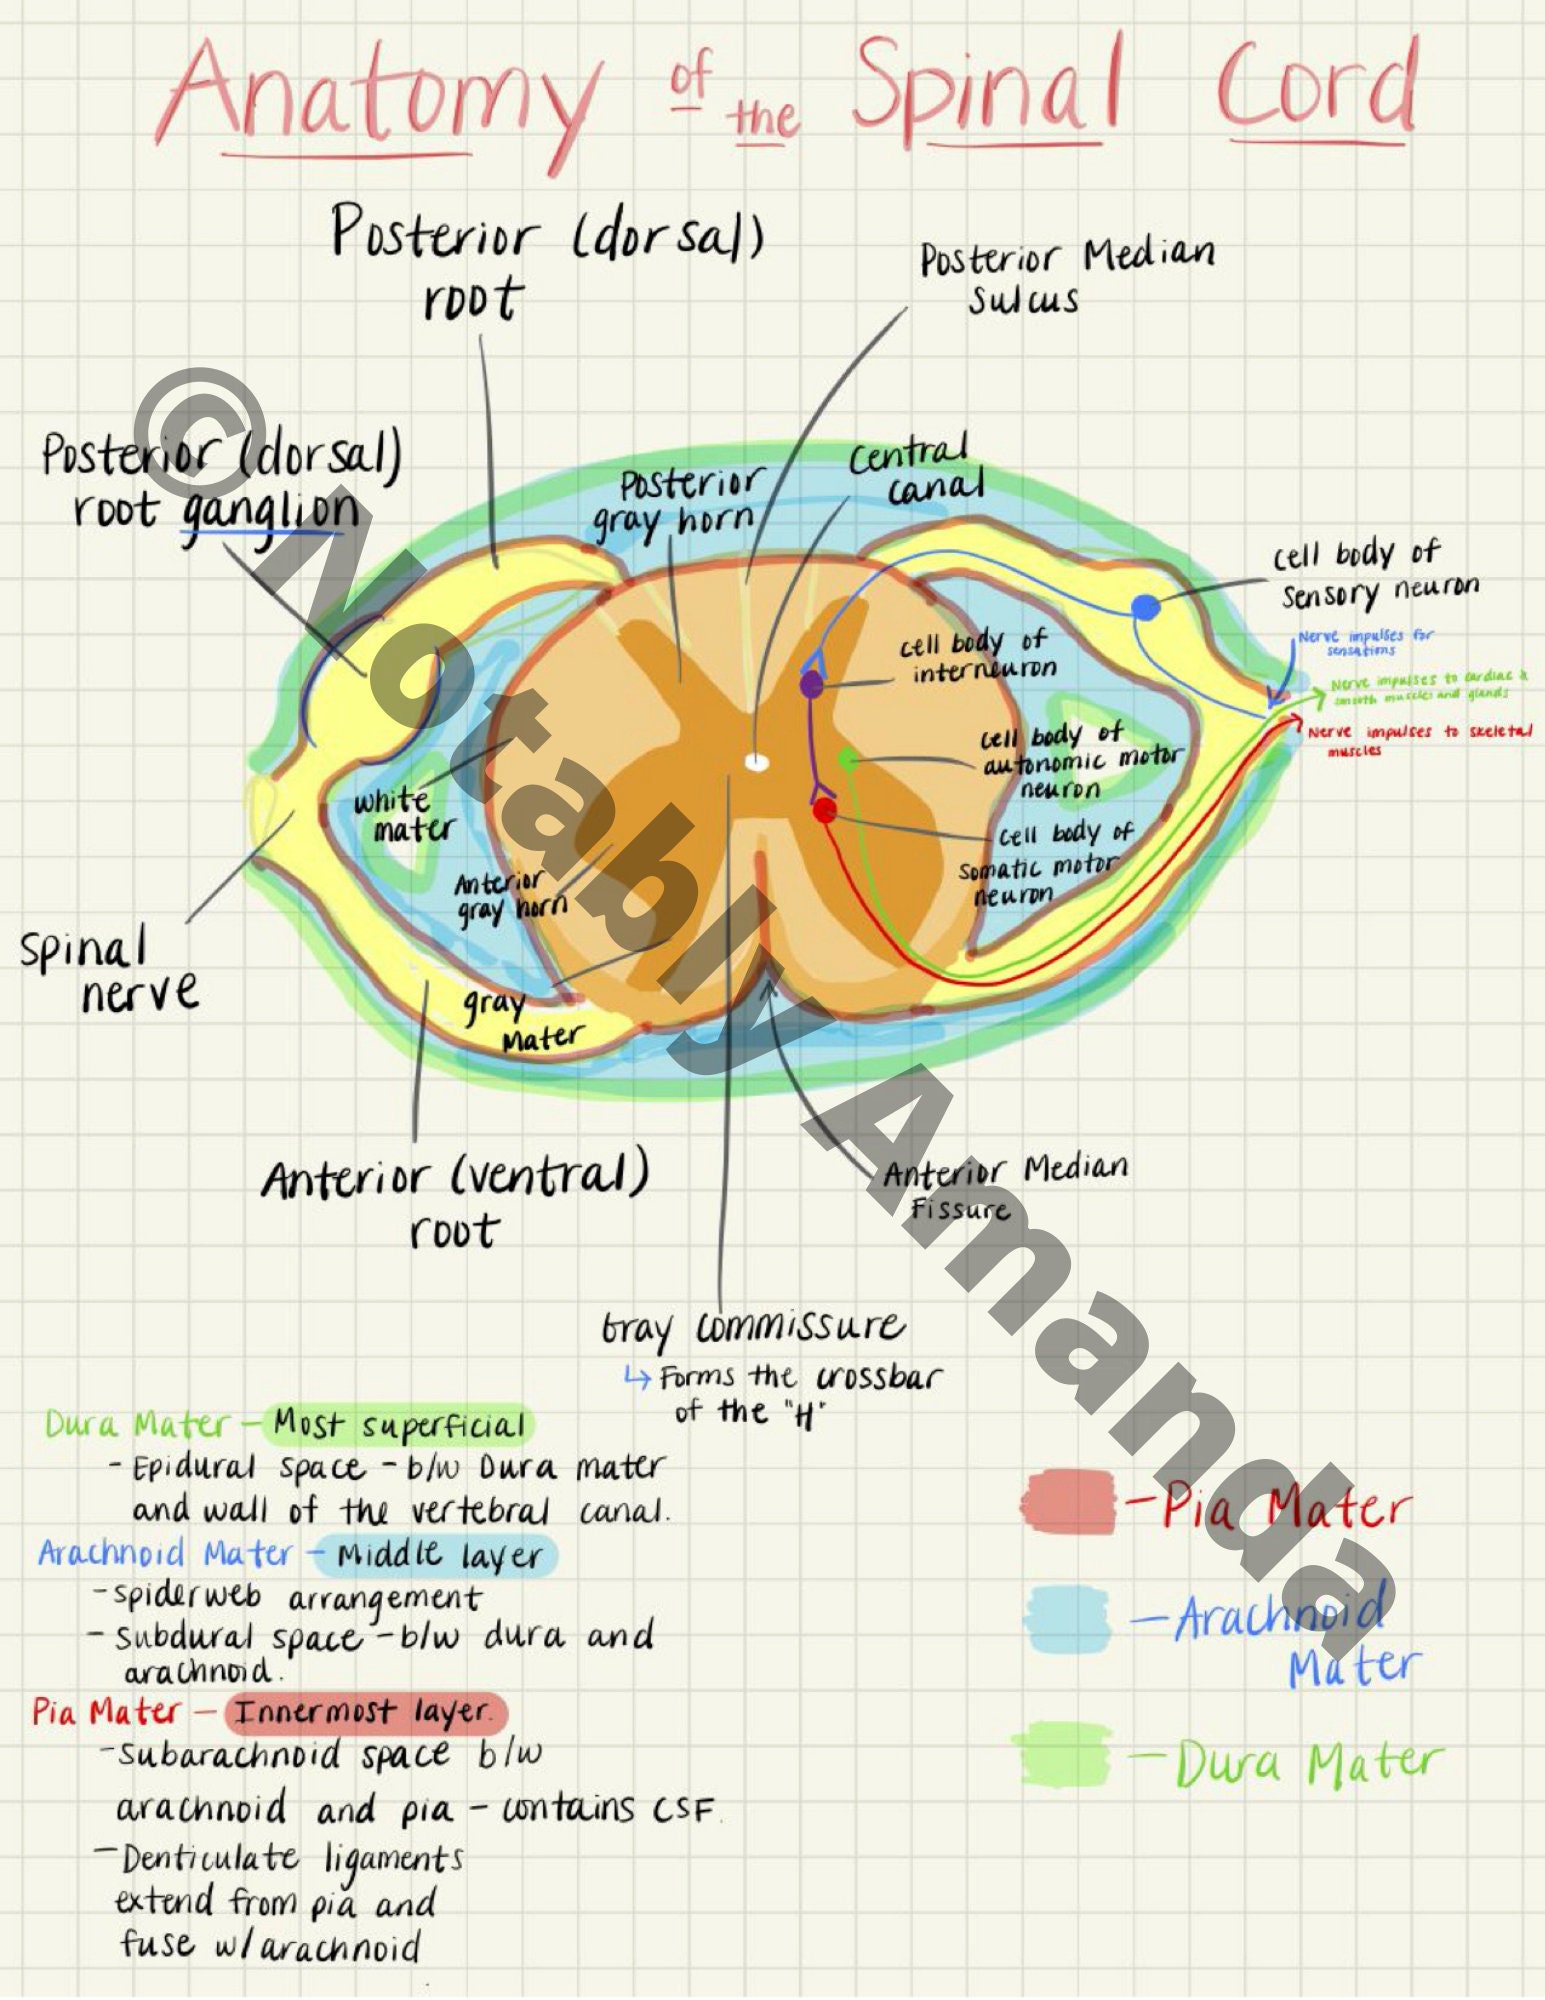 Anatomy of the Spinal Cord
Posterior (dorsal)
root
Posterior Median
Sulcus
Posterior (dorsal)
root ganglion
Posterior
gray horn
Central
canal
cell body of
sensory neuron
Nerve impulses for
sensations
Nerve impulses to cardiac &
smooth muscles and glands
Nerve impulses to skeletal
muscles
cell body of
interneuron
cell body of
autonomic motor
neuron
cell body of
somatic motor
neuron
white
mater
Anterior
gray horn
gray
Mater
Spinal
nerve
Anterior (ventral)
root
Anterior Median
Fissure
Gray commissure
↳ Forms the crossbar
of the "H"
Dura Mater - Most superficial
- Epidural space - b/w Dura mater
and wall of the vertebral canal.
Arachnoid Mater - Middle layer
- spiderweb arrangement
- Subdural space - b/w dura and
arachnoid.
Pia Mater - Innermost layer.
- Subarachnoid space b/w
arachnoid and pia - contains CSF.
- Denticulate ligaments
extend from pia and
fuse w/arachnoid
- Pia Mater
- Arachnoid
Mater
- Dura Mater
©Notably Amanda